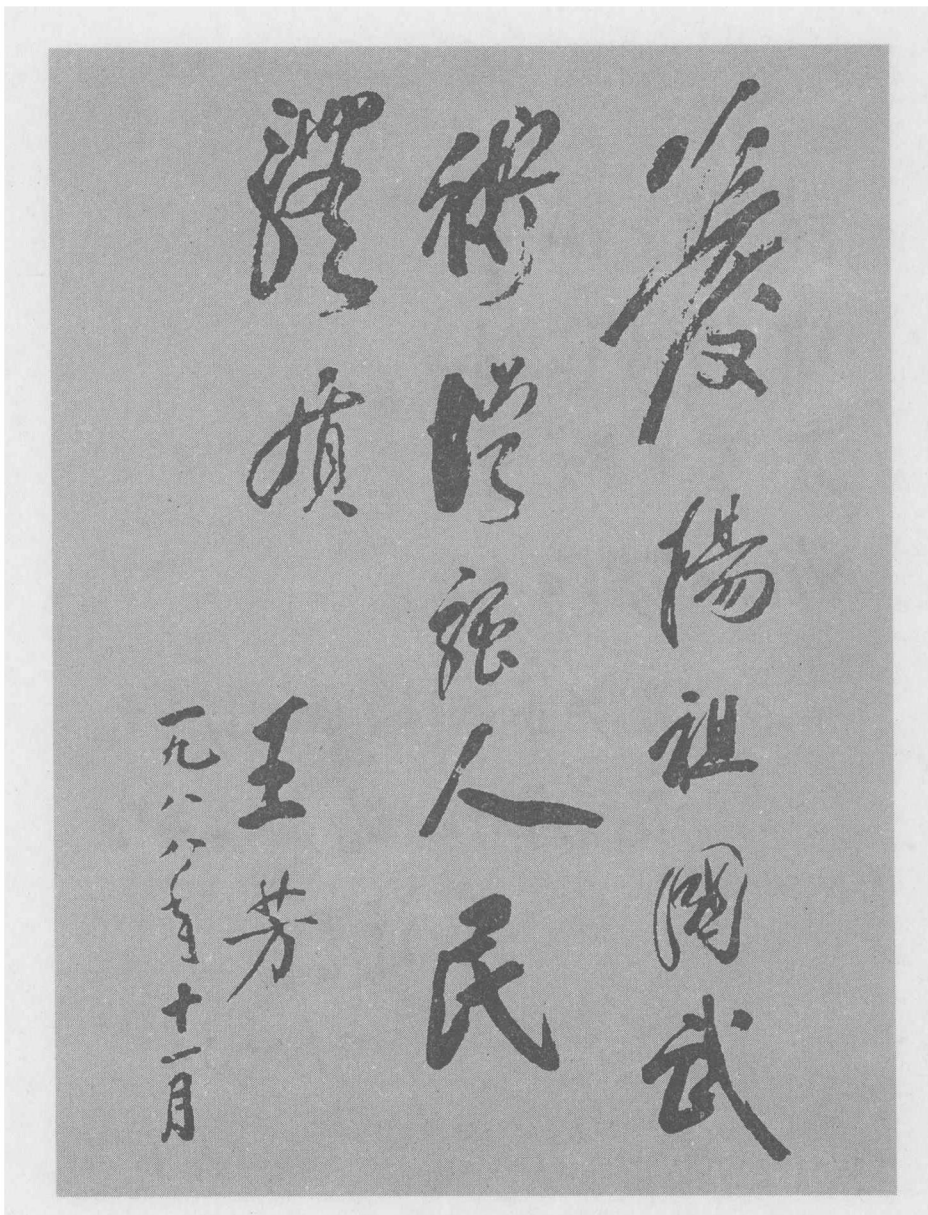 發揚祖國武
術增強人民
體質
王芳
一九八八年十一月